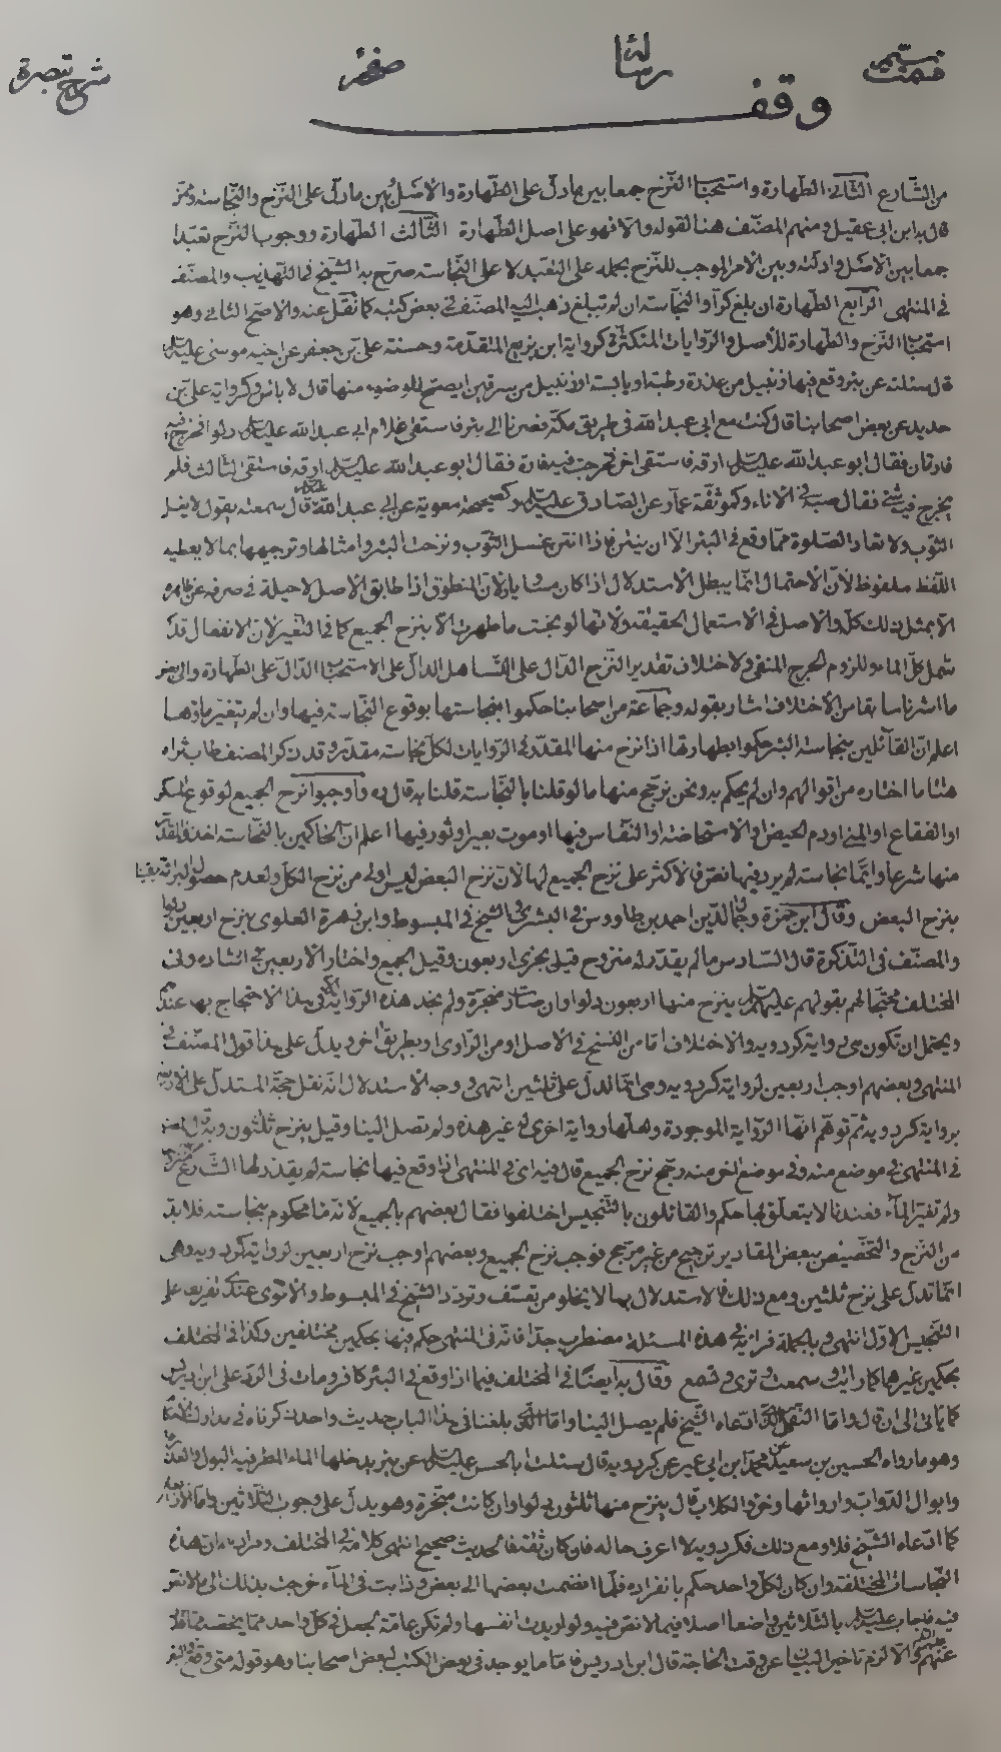 شرح تبصرة
وقف
من الشارع الثاني الطهارة واستحباب النزح جمعا بين ما دل على الطهارة والاصل وبين ما دل على النزح والنجاسة وممن
قال به ابن ابي عقيل ومنهم المصنف هنا لقوله والا فهو على اصل الطهارة الثالث الطهارة ووجوب النزح تعبدا
جمعا بين الاصل وادلته وبين الامر الموجب للنزح بحمله على التعبد لا على النجاسة صرح به الشيخ في التهذيب والمصنف
في المنتهى الرابع الطهارة ان بلغ كرا والنجاسة ان لم تبلغ ذهب اليه المصنف في بعض كتبه كما نقل عنه والاصح الثاني وهو
استحباب النزح والطهارة للاصل والروايات المتكثرة كرواية ابن بزيع المتقدمة وحسنة على بن جعفر عن اخيه موسى عليه السلم
قال سئلته عن بئر وقع فيها زنبيل من عذرة رطبة او يابسة او زنبيل من سرقين ايصح الوضوء منها قال لا باس وكرواية على بن
حديد عن بعض اصحابنا قال كنت مع ابي عبد الله في طريق مكة فصرنا الى بئر فاستقى غلام ابي عبد الله عليه السلم دلوا فخرج فيه
فارتان فقال ابو عبد الله عليه السلم ارقه فاستقى اخر فخرجت فيه فارة فقال ابو عبد الله عليه السلم ارقه فاستقى الثالث فلم
يخرج فيه شئ فقال صبه في الاناء وكموثقة عمار عن الصادق عليه السلم وكصحيحة معوية عن ابي عبد الله قال سمعته يقول لا يغسل
الثوب ولا تعاد الصلوة مما وقع في البئر الا ان ينتن فاذا انتن غسل الثوب ونزحت البئر وامثالها وتوجيهها بما لا يعطيه
اللفظ ملفوظ لان الاحتمال انما يبطل الاستدلال اذا كان مساويا ولان المنطوق اذا طابق الاصل لا حيلة في صرفه عن ظاهره
الا بمثل ذلك كل والاصل في الاستعمال الحقيقة ولانها لو نجست ما طهرت الا بنزح الجميع كما في التغير لان الانفعال قد
شمل كل الماء وللزوم الحرج المنفي ولاختلاف تقدير النزح الدال على التساهل الدال على الاستحباب الدال على الطهارة والى بعض
ما اشرنا سابقا من الاختلاف اشار بقوله وجماعة من اصحابنا حكموا بنجاستها بوقوع النجاسة فيها وان لم تتغير ماؤها
اعلم ان القائلين بنجاسة البئر حكموا بطهارتها اذا نزح منها المقدر في الروايات لكل نجاسة مقدر وقد ذكر المصنف طاب ثراه
هنا ما اختاره من اقوالهم وان لم يحكم به ونحن نرجح منها ما لو قلنا بالنجاسة قلنا به قال ره واوجبوا نزح الجميع لوقوع المسكر
او الفقاع او المني او دم الحيض او الاستحاضة او النفاس فيها او موت بعير او ثور فيها اعلم ان الحاكمين بالنجاسة
منها شرعا وايما نجاسة لم يرد فيها نص فالاكثر على نزح الجميع لها لان نزح البعض ليس اولى من نزح الكل ولعدم حصول البراءة يقينا
بنزح البعض وقال ابن حمزة وجمال الدين احمد بن طاووس في البشرى والشيخ في المبسوط وابن زهرة العلوي بنزح اربعين دلوا
والمصنف في التذكرة قال السادس ما لم يقدر له منزوح قيل يجزى اربعون وقيل الجميع واختار الاربعين في ارشاده وفي
المختلف محتجا لهم بقولهم عليهم السلم ينزح منها اربعون دلوا وان صارت مبخرة ولم نجد هذه الرواية الا في هذا الاحتجاج بها عندهم
ويحتمل ان تكون هي رواية كردويه والاختلاف اما من النسخ في الاصل او من الراوى او بطريق اخر ويدل على هذا قول المصنف في
المنتهى وبعضهم اوجب اربعين لرواية كردويه وهي انما تدل على ثلثين انتهى ووجه الاستدلال انه نقل حجة المستدل على الاربعين
برواية كردويه ثم توهم انها الرواية الموجودة ولعلها رواية اخرى له غير هذه ولم تصل الينا وقيل ينزح ثلثون وبه قال المصنف
في المنتهى في موضع منه وفي موضع اخر منه رجح نزح الجميع قال فيه اى في المنتهى اذا وقع فيها نجاسة لم يقدر لها الشارع منزوحا
ولم تغير الماء فعندنا لا يتعلق بها حكم والقائلون بالتنجيس اختلفوا فقال بعضهم بالجميع لانه ماء محكوم بنجاسته فلابد
من النزح والتخصيص ببعض المقادير ترجيح من غير مرجح فوجب نزح الجميع وبعضهم اوجب نزح اربعين لرواية كردويه وهي
انما تدل على نزح ثلثين ومع ذلك فالاستدلال بها لا يخلو من تعسف وتردد الشيخ في المبسوط والاقوى عندى تفريعا على
التنجيس الاول انتهى وبالجملة فرأيه في هذه المسئلة مضطرب جدا فانه في المنتهى حكم فيها بحكمين مختلفين وكذا في المختلف
بحكمين غيرهما كما رأيت وسمعت وترى وتسمع وقال به ايضا في المختلف فيما اذا وقع في البئر كافر ومات في الرد على ابن ادريس
كما ياتى الى ان قال واما النقل الذى ادعاه الشيخ فلم يصل الينا واما الذى بلغنا في هذا الباب حديث واحد ذكرناه في مدارك الاحكام
وهو ما رواه الحسين بن سعيد عن محمد ابن ابي عمير عن كردويه قال سئلت ابا الحسن عليه السلم عن بئر يدخلها الماء المطر فيه البول والعذرة
وابوال الدواب وارواثها وخرؤ الكلاب قال ينزح منها ثلثون دلوا وان كانت مبخرة وهو يدل على وجوب الثلاثين واما الاربعون
كما ادعاه الشيخ فلا ومع ذلك فكردويه لا اعرف حاله فان كان ثقة فالحديث صحيح انتهى كلامه في المختلف ومراده ان هذه
النجاسات المختلفة وان كان لكل واحد حكم بانفراده فلما انضمت بعضها الى بعض وذابت في الماء خرجت بذلك الى ما لا نص
فيه فاجاب عليه السلم بالثلاثين واضعا اصلا فيما لا نص فيه ولو اريدت انفسها ولم تكن عامة لجعل في كل واحد مما يخصه مما نقل
عنهم والا لزم تاخير البيان عن وقت الحاجة قال ابن ادريس فاما ما يوجد في بعض الكتب لبعض اصحابنا وهو قوله متى وقع في البئر